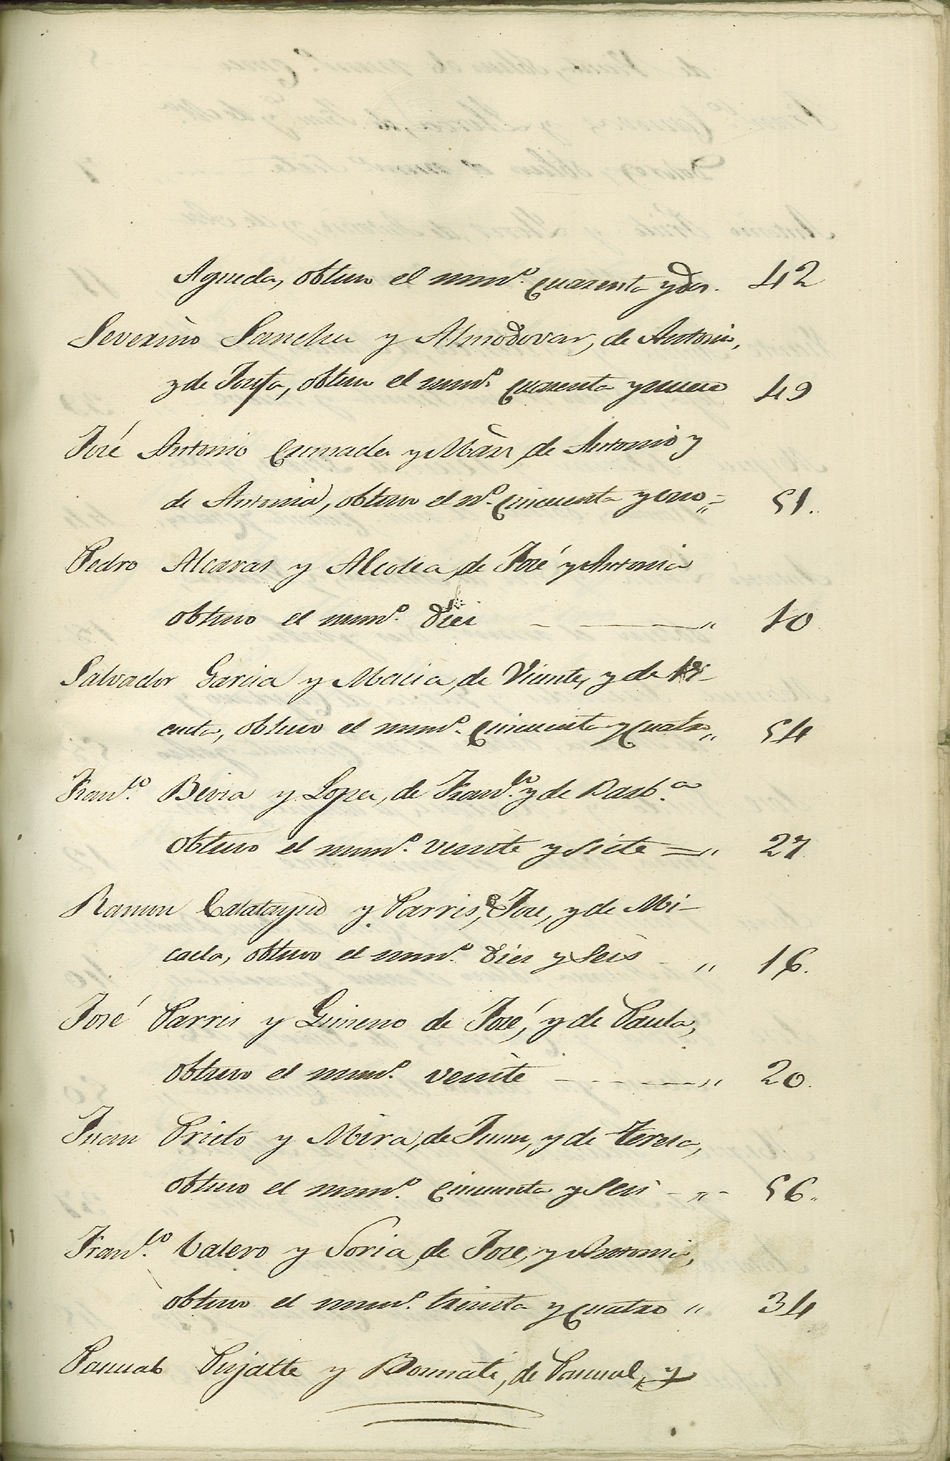 Agueda, obtuvo el num.º cuarenta y dos. 42
Severino Sanchez y Almodovar, de Antonio,
y de Josefa, obtuvo el num.º cuarenta y nueve 49
José Antonio Quesada y Mas, de Antonio y
de Antonia, obtuvo el nº. cincuenta y uno 51.
Pedro Alcaras y Alcolea, de José y Antonia
obtuvo el num.º diez " 10
Salvador Garcia y Macia, de Vicente, y de Vi-
centa, obtuvo el num.º cincuenta y cuatro " 54
Fran.co Bivia y Lopez, de Fran.co y de Barb.a
obtuvo el num.º veinte y siete " 27
Ramon Calatayud y Parris, de Jose, y de Mi-
caela, obtuvo el num.º diez y seis " 16.
José Parris y Gimeno de José, y de Paula,
obtuvo el num.º veinte " 20.
Juan Prieto y Mira, de Juan, y de Teresa,
obtuvo el num.º cincuenta y seis " 56.
Fran.co Valero y Soria, de Jose, y Antonia,
obtuvo el num.º treinta y cuatro " 34
Pascual Pujalte y Bonmati, de Pascual, y